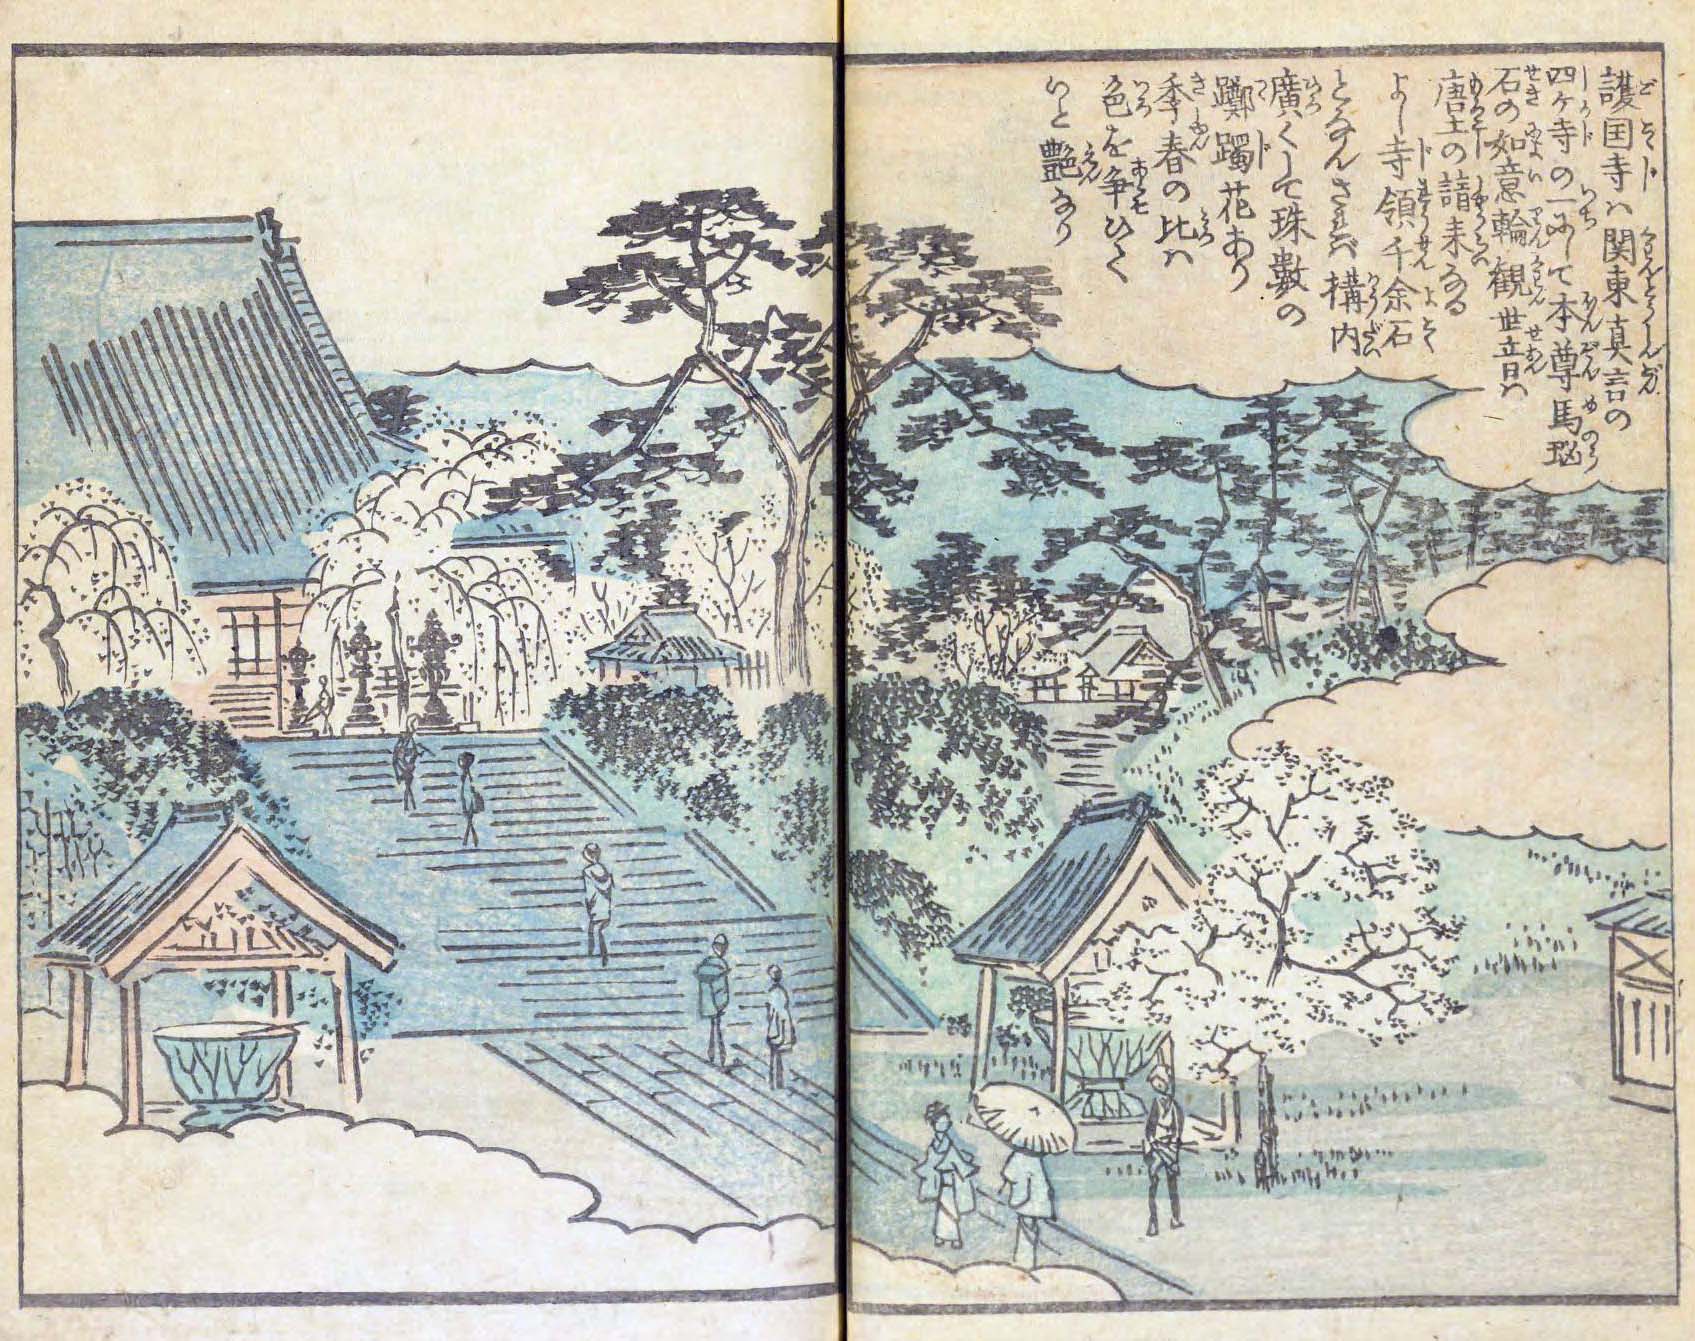 護国寺ハ関東真言の
四ヶ寺の一にして本尊馬瑙
石の如意輪観世音ハ
唐土の請来なる
よし寺領千余石
となんされバ構内
廣くして珠數の
躑躅花あり
季春の比ハ
色を争ひて
いと艶なり